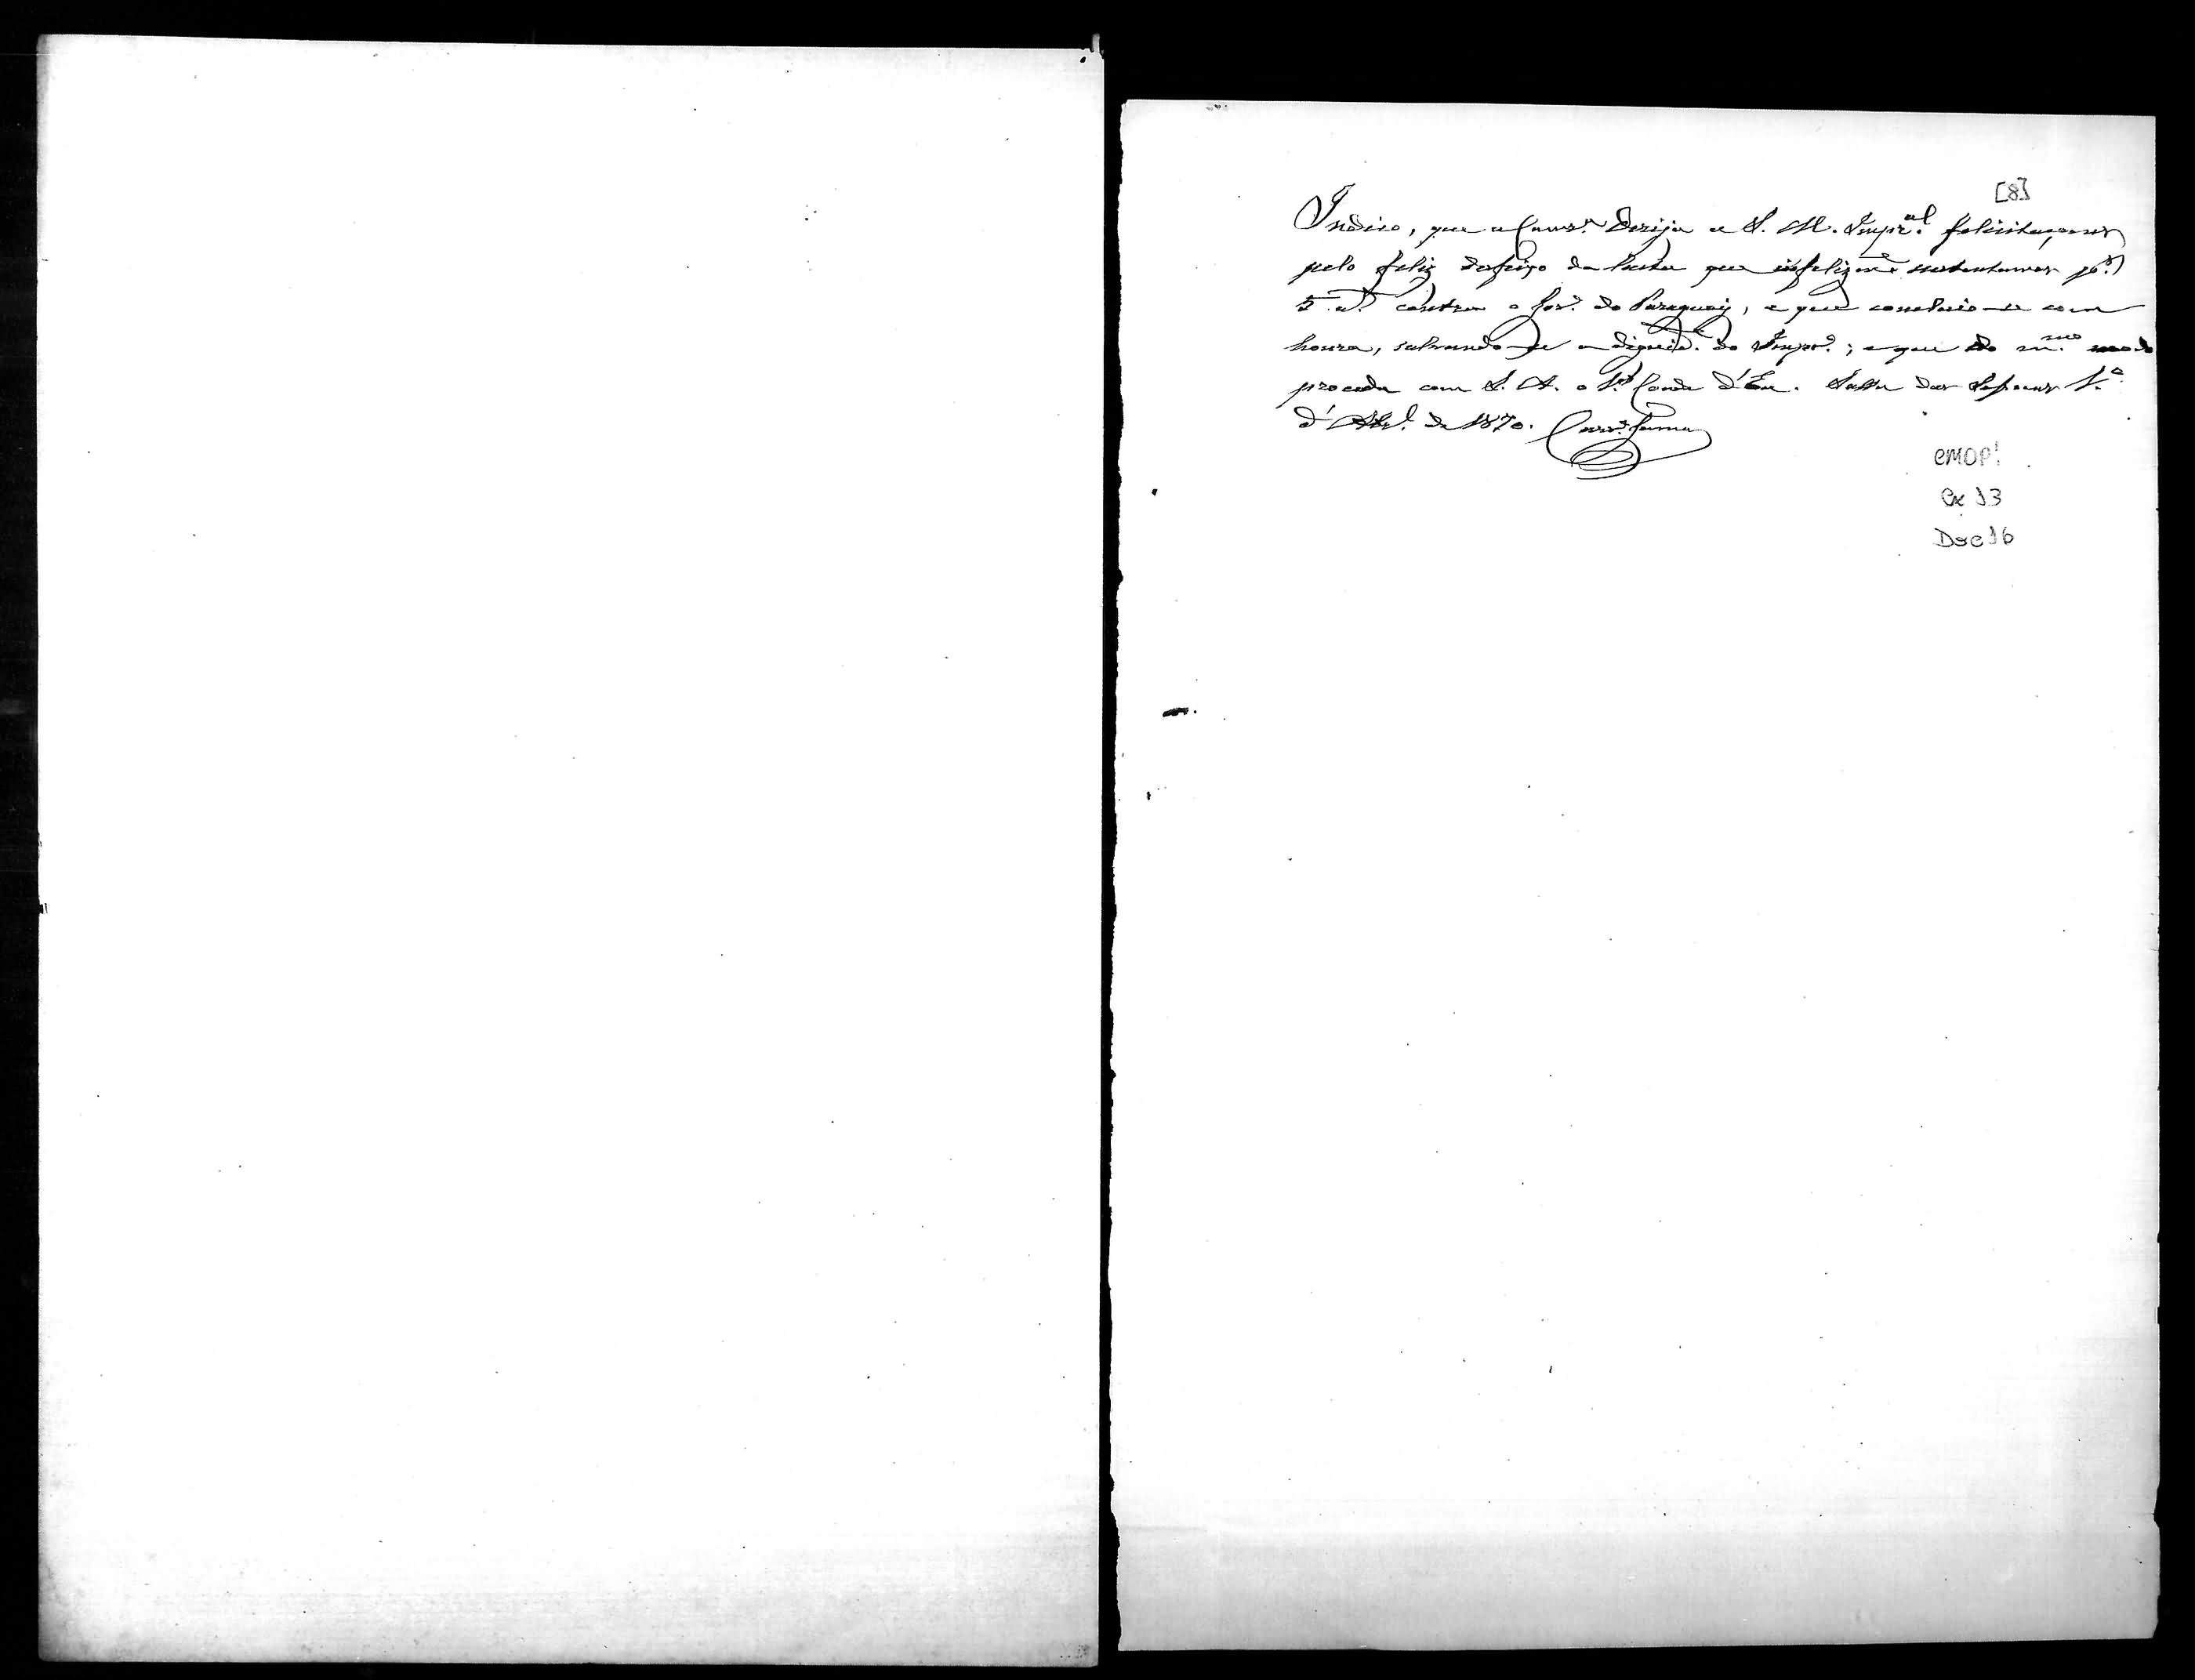 [8]
Indico, que a Camr.ª Dirija a S. M. Impr.al felicitaçoens
pelo feliz desfeixo da lucta que infelizm.e sustentamos p.r
5 a.s contra o Gov.º do Paraguay, e que concluio-se com
honra, salvando-se a dignid.e do Impr.º; e que do m.mo modo
proceda com S. A. o Sr. Conde d'Eu. Salla das Sessoens 1.º
d'Abr.l de 1870. Gama
CMOP
Cx 13
Doc 16